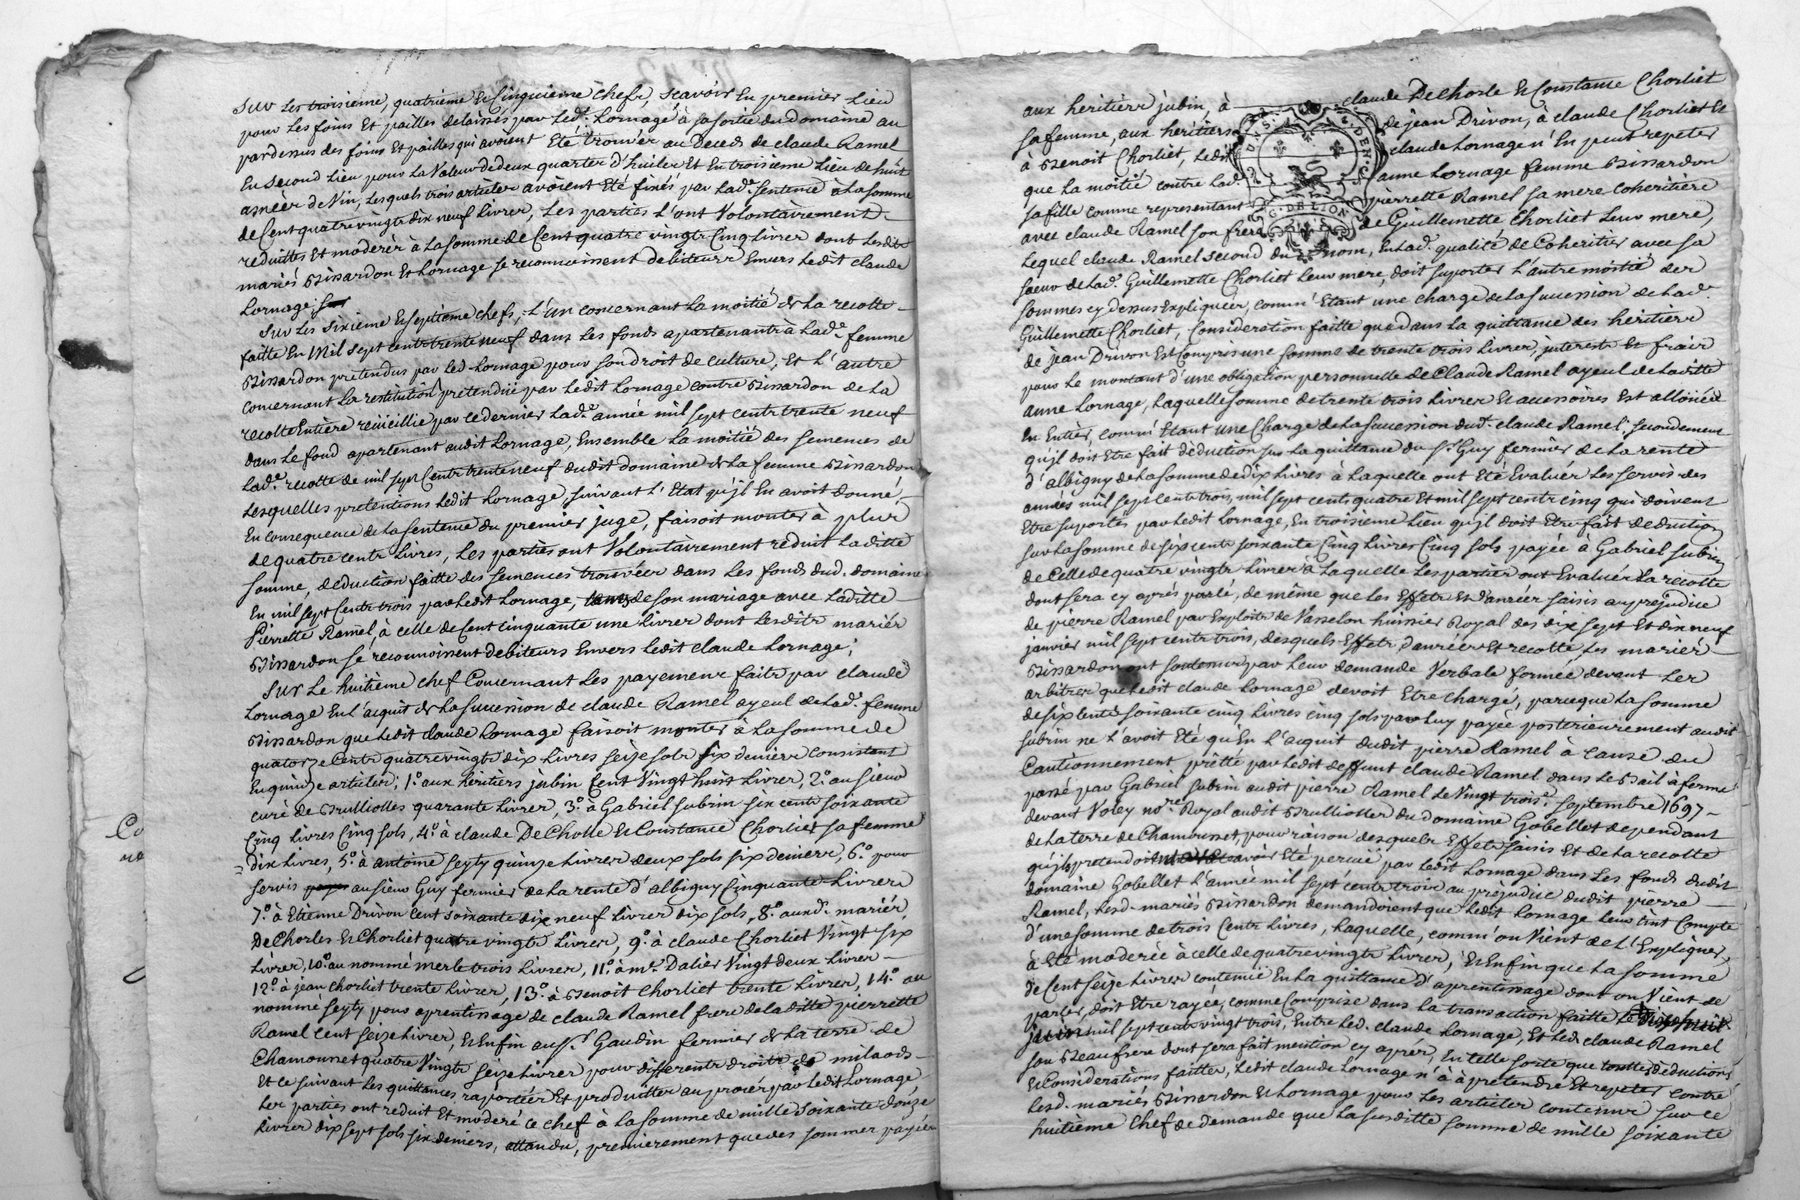 Sur Les troisieme, quatrieme et Cinquieme Chefs, scavoir En premier Lieu
pour Les foins Et pailles delaissés par Led. Lornage à sa sortie du Domaine au
pardessus des foins Et pailles qui avoient Eté trouvés au Deceds de claude Ramel
En second Lieu pour La Valeur de deux quartes d'huile, Et En troisieme Lieu de huit
asnées de Vin, Lesquels trois articles avoient Eté fixés par Lad.e Sentence à La somme
de Cent quatre vingts dix neuf Livres, Les parties L'ont Volontairement
reduittes Et moderés à La somme de Cent quatre vingts Cinq Livres dont Lesdits
mariés Bissardon Et Lornage se reconnoissent debiteurs Envers Ledit claude
Lornage;
Sur Les Sixieme Et septieme chefs, L'un concernant La moitié de La recolte
faitte En Mil sept cents trente neuf dans Les fonds apartenants à Lad.e femme
Bissardon pretendue par led. Lornage pour son droit de culture, Et L'autre
concernant La restitution pretendüe par Ledit Lornage contre Bissardon de La
recolte Entiere recüeillie par ce dernier Lad.e année mil sept cents trente neuf
dans Le fond apartenant audit Lornage, Ensemble La moitié des semences de
Lad.e recolte de mil sept Cents trente neuf dudit domaine de La femme Bissardon
Lesquelles pretentions Ledit Lornage, suivant L'Etat qu'jl En avoit donné,
En consequence de La sentence du premier juge, faisoit monter à plus
de quatre cents Livres, Les parties ont Volontairement reduit Laditte
somme, deduction faitte des semences trouvées dans Les fonds dud. domaine
En mil sept Cents trois par Ledit Lornage, de son mariage avec Laditte
Pierrette Ramel, à celle de Cent cinquante une Livres dont Lesdits mariés
Bissardon se reconnoissent debiteurs Envers Ledit claude Lornage;
Sur Le huitieme chef Concernant Les payemens faits par claude
Lornage En L'acquit de La succession de claude Ramel ayeul de Lad.e femme
Bissardon que Ledit claude Lornage faisoit monter à La somme de
quatorze Cents quatre vingts dix Livres seize sols six deniers consistant
En quinze articles; 1.º aux heritiers jubin Cent Vingt huit Livres, 2.º au sieur
curé de Brulliolles quarante Livres, 3.º à Gabriel subrin six cents soixante
Cinq Livres Cinq sols, 4.º à claude De Chosle Et Constance Chorliet sa femme
dix Livres, 5.º à antoine seyty quinze Livres deux sols six deniers, 6.º pour
servis au sieur Guy fermier de La rente d'albigny Cinquante Livres
7.º à Etienne Drivon cent soixante dix neuf Livres dix sols, 8.º auxd. mariés
De Chosles Et Chorliet quatre vingts Livres, 9.º à claude Chorliet Vingt six
Livres, 10.º au nommé merle trois Livres, 11.º à m.e Dalier Vingt deux Livres
12.º à jean chorliet trente Livres, 13.º à Benoit Chorliet trente Livres, 14.º au
nommé seyty pour aprentissage de claude Ramel frere de laditte pierrette
Ramel cent seize Livres, Et Enfin au s.r Gaudin fermier de La terre de
Chamousset quatre Vingts seize Livres pour differents droits de milaods
Et ce suivant Les quittances raportées Et produittes au procès par Ledit Lornage,
Les parties ont reduit Et moderé ce chef à La somme de mille soixante douze
Livres dix sept sols six deniers, attendu, premierement que des sommes payées
aux heritiers jubin, à claude De Chosle Et Constance Chorliet
sa femme, aux heritiers de jean Drivon, à claude Chorliet Et
à Benoit Chorliet, Ledit claude Lornage n'En peut repeter
que La moitié contre Lad.e anne Lornage femme Bissardon
sa fille comme representant pierrette Ramel sa mere coheritiere
avec claude Ramel son frere de Guillemette Chorliet Leur mere,
Lequel claude Ramel second du nom, En Lad.e qualité de Coheritier avec sa
soeur de Lad.e Guillemette Chorliet Leur mere, doit suporter L'autre moitié des
sommes cy dessus Expliquées, comm' Etant une charge de La succession de Lad.e
Guillemette Chorliet, Consideration faitte que dans La quittance des heritiers
de jean Drivon Est Compris une somme de trente trois Livres, interests Et frais
pour Le montant d'une obligation personnelle de Claude Ramel ayeul de Laditte
anne Lornage, Laquelle somme de trente trois Livres Et accessoires Est alloüée
En Entier, comm' Etant une Charge de La succession dud. claude Ramel; secondement
qu'jl doit Etre fait deduction sur La quittance du s.r Guy fermier de La rente
d'albigny de La somme de dix Livres à Laquelle ont Eté Evalués Les servis des
années mil sept cents trois, mil sept cents quatre Et mil sept cents cinq qui doivent
Etre suportés par Ledit Lornage, En troisieme Lieu qu'jl doit Etre fait deduction
sur La somme de six cents soixante Cinq Livres Cinq sols payée à Gabriel subrin
de Celle de quatre vingts Livres à Laquelle Les parties ont Evalués La recolte
dont sera cy après parlé, de même que Les Effets Et Danrées saisis au prejudice
de pierre Ramel par Exploits de Vasselon huissier Royal des dix sept Et dix neuf
janvier mil sept cents trois, desquels Effets, Danrées Et recolte, Les mariés
Bissardon ont soutenus par Leur demande Verbale formée devant Les
arbitres que Ledit claude Lornage devoit Etre chargé, parceque La somme
de six Cents soixante cinq Livres cinq sols par Luy payée posterieurement audit
subrin ne L'avoit Eté qu'En L'acquit dudit pierre Ramel à cause du
Cautionnement prêtté par Ledit deffunt claude Ramel dans Le Bail à ferme
passé par Gabriel subrin audit pierre Ramel Le Vingt trois.e septembre 1697
devant Voley no.re Royal audit Brulliolles du Domaine Gobellet dependant
de La terre de Chamousset, pour raison desquels Effets saisis Et de La recolte
qu'jls pretendoient avoir Eté perçüe par Ledit Lornage dans Les fonds dudit
domaine Gobellet L'année mil sept cents trois au prejudice dudit pierre
Ramel, Lesd. mariés Bissardon demandoient que Ledit Lornage Leur tint Compte
d'une somme de trois Cents Livres, Laquelle, comm'on Vient de L'Expliquer,
à Eté moderée à celle de quatre vingts Livres, Et Enfin que La somme
de Cent seize Livres contenüe En La quittance d'aprentissage dont on Vient de
parler, doit Etre rayée, comme Comprise dans La transaction faitte Le
mil sept cents vingt trois, Entre Led. claude Lornage, Et Led. claude Ramel
son Beaufrere dont sera fait mention cy après, En telle sorte que touttes deductions
Et Considerations faittes, Ledit claude Lornage n'à à pretendre Et repeter contre
Lesd. mariés Bissardon Et Lornage pour Les articles contenus sur ce
huitieme Chef de demande que La susditte somme de mille soixante